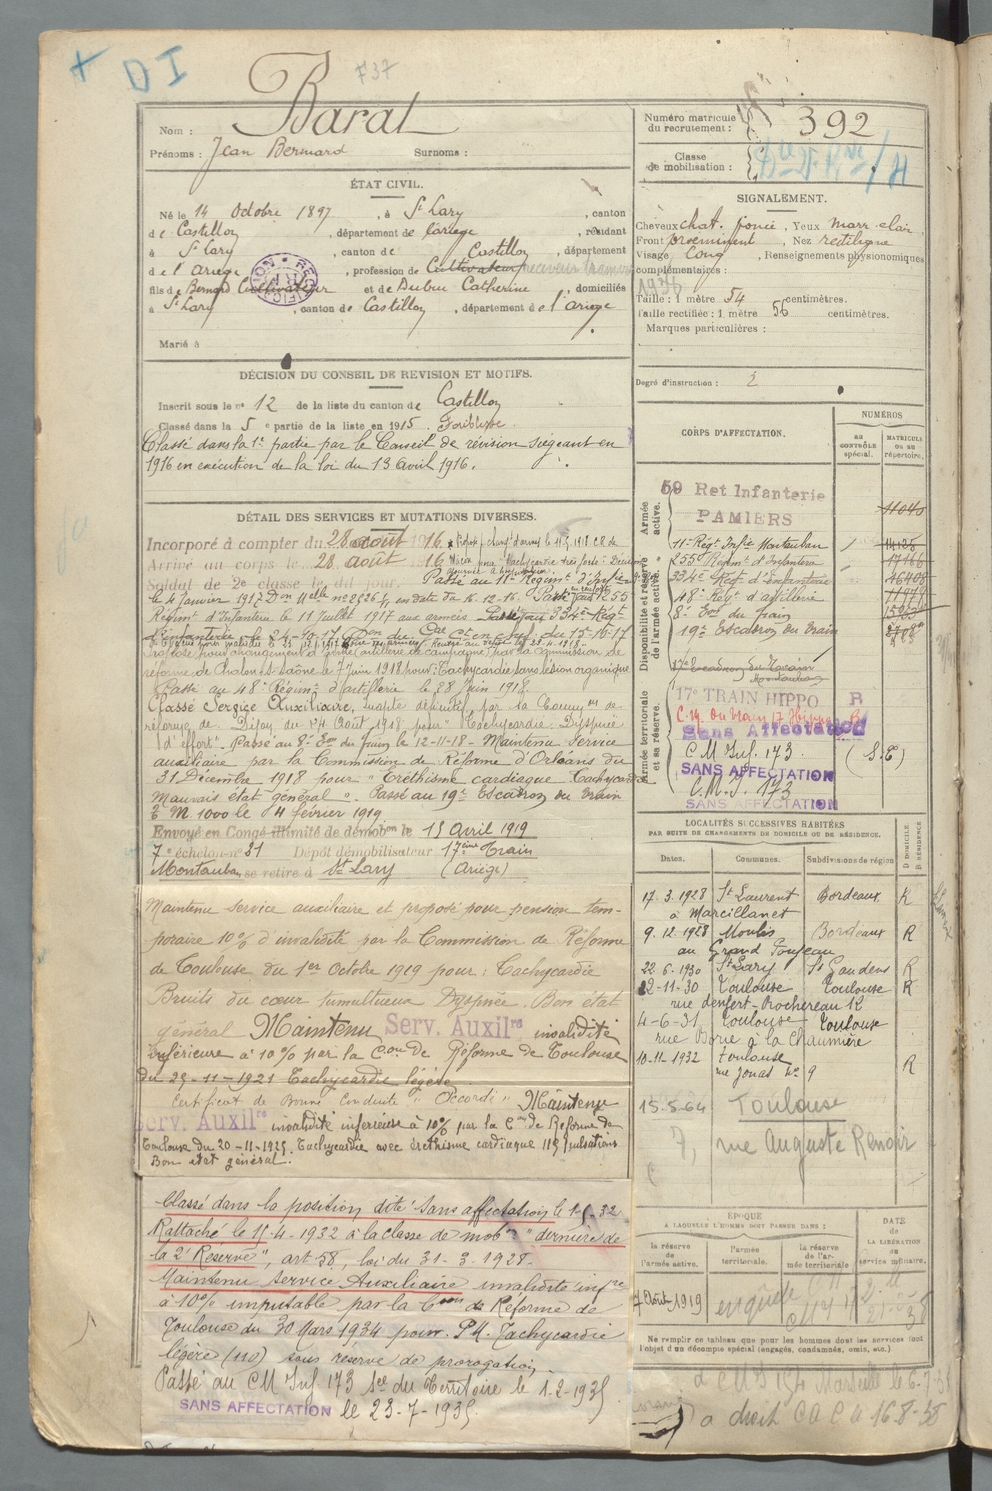 + DI
737
Nom : Barat
Prénoms : Jean Bernard Surnoms :
Numéro matricule du recrutement : 392
Classe de mobilisation :
ÉTAT CIVIL.
Né le 14 Octobre 1897, à St Lary, canton
de Castillon, département de l'ariege, résidant
à St Lary, canton de Castillon, département
de l'Ariege, profession de Cultivateur
fils de Bernard Cultivateur et de Dubuc Catherine, domiciliés
à St Lary, canton de Castillon, département de l'ariege
RECTIFICATION
Marié à
SIGNALEMENT.
Cheveux chat. foncé, Yeux marr. clair
Front proeminent, Nez rectiligne
Visage Long, Renseignements physionomiques
complémentaires :
1936
Taille : 1 mètre 54 centimètres.
Taille rectifiée : 1 mètre 56 centimètres.
Marques particulières :
Degré d'instruction : 2
DÉCISION DU CONSEIL DE REVISION ET MOTIFS.
Inscrit sous le n° 12 de la liste du canton de Castillon
Classé dans la 5e partie de la liste en 1915. Faiblesse.
Classé dans la 1e partie par le Conseil de révision siégeant en
1916 en exécution de la loi du 13 avril 1916.
DÉTAIL DES SERVICES ET MUTATIONS DIVERSES.
Incorporé à compter du 28 août 1916
Arrivé au corps le 28 août 16
Soldat de 2e classe le dit jour. Passé au 11e Régimt d'Infie
le 4 Janvier 1917 Don Melle n° 2826 en date du 16-12-16. Passé au 255
Régimt d'Infanterie le 11 Juillet 1917 aux armées. Passé au 334e Régt
d'infanterie le 24-10-17 Don du Gal Ct en Chef du 15-10-17
Proposé pour changement d'arme (artillerie de campagne) par la Commission de
réforme de Chalon s/ Saône le 7 juin 1918 pour : Tachycardie sans lésion organique
Passé au 48e Régimt d'artillerie le 28 Juin 1918
Classé Service Auxiliaire, inapte définitif par la Common de
réforme de Dijon du 14 Août 1918 pour "Tachycardie. Dyspnée
d'effort". Passé au 8e Eon du Train le 12-11-18 - Maintenu Service
auxiliaire par la Commission de Réforme d'Orléans du
31 Décembre 1918 pour "Eréthisme cardiaque Tachycardie
Mauvais état général". Passé au 19e Escadron du Train
E M. 1000 le 4 février 1919
Envoyé en Congé illimité de démobon le 13 Avril 1919
7e échelon n° 31 Dépôt démobilisateur 17ème Train
Montauban se retire à St Lary (Ariège)
Maintenu service auxiliaire et proposé pour pension tem-
poraire 10% d'invalidité par la Commission de Réforme
de Toulouse du 1er Octobre 1919 pour : Tachycardie
Bruits du cœur tumultueux Dyspnée. Bon état
général Maintenu Serv. Auxilre invalidité
inférieure à 10% par la Con de Réforme de Toulouse
du 29-11-1921 Tachycardie légère
Certificat de Bonne Conduite "Accordé" Maintenu
Serv. Auxilre invalidité inférieure à 10% par la Con de Réforme de
Toulouse du 20-11-1925. Tachycardie avec éréthisme cardiaque 115 pulsations
Bon état général.
Classé dans la position dite Sans affectation le 1-5-32
Rattaché le 15-4-1932 à la classe de mobon "dernière de
la 2e Réserve", art. 58, loi du 31-3-1928.
Maintenu service Auxiliaire invalidité infre
à 10% imputable par la Con de Réforme de
Toulouse du 30 Mars 1934 pour P.M. Tachycardie
légère (110) sous réserve de prorogation.
Passé au CM Inf 173 Son du Territoire le 1-2-1935
SANS AFFECTATION le 23-7-1935
CORPS D'AFFECTATION.
NUMÉROS
AU CONTRÔLE spécial.
MATRICULE OU AU répertoire.
Armée active.
59 Ret Infanterie
PAMIERS
11040
Disponibilité et réserve de l'armée active.
11e Régt Infie Montauban
255e Régimt d'Infanterie
334e Régt d'infanterie
48e Régt d'artillerie
8e Eon du train
19e Escadron du Train
17e Escadron du Train
Montauban
Armée territoriale et sa réserve.
17e TRAIN HIPPO R
C. M. du train 17 Hippo
Sans Affectation
C M Inf. 173 (S.E)
SANS AFFECTATION
C. M. I. 173
SANS AFFECTATION
LOCALITÉS SUCCESSIVES HABITÉES
PAR SUITE DE CHANGEMENTS DE DOMICILE OU DE RÉSIDENCE.
Dates. Communes. Subdivisions de région D DOMICILE. R RÉSIDENCE
17.3.1928 St Laurent Bordeaux R
à Marcillanet
9.12.1928 Moulis Bordeaux R
au Grand Poujeau
22.6.1930 St Lary St Gaudens R
12-11-30 Toulouse Toulouse R
rue denfert-Rochereau 12
4-6-31 Toulouse Toulouse
rue Borie à la Chaumière
10-11-1932 Toulouse R
rue Jonas n° 9
15-5-64 Toulouse
7, rue Auguste Renoir
EPOQUE
A LAQUELLE L'HOMME DOIT PASSER DANS :
la réserve de l'armée active.
l'armée territoriale.
la réserve de l'armée territoriale
DATE de LA LIBÉRATION du service militaire.
7 Août 1919
Ne remplir ce tableau que pour les hommes dont les services font
l'objet d'un décompte spécial (engagés, condamnés, omis, etc.)
a droit CA C 16-8-38